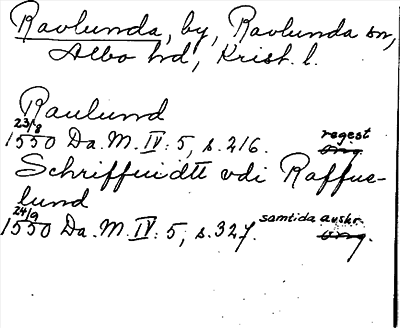 Ravlunda, by, Ravlunda sn,
Albo hd, Krist. l.
Raulund
23/8 regest
1550 Da. M. IV: 5, s. 216. orig.
Schriffuidtt vdi Raffue-
lund
24/9 samtida avskr.
1550 Da. M. IV: 5, s. 327. orig.